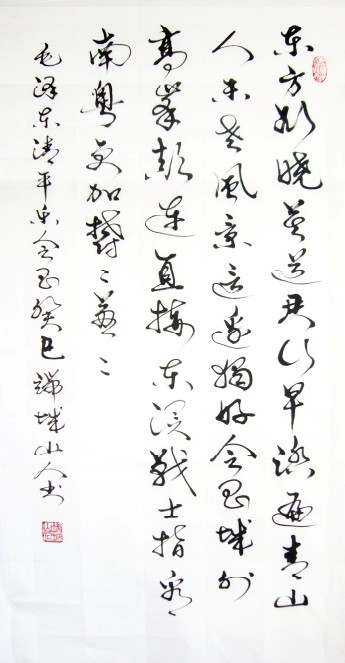 东方欲晓莫道君行早踏遍青山
人未老風景这边独好会昌城外
高峯颠连直接东溟战士指看
南粤更加欝〻葱〻
毛泽东清平乐会昌癸巳端城山人书